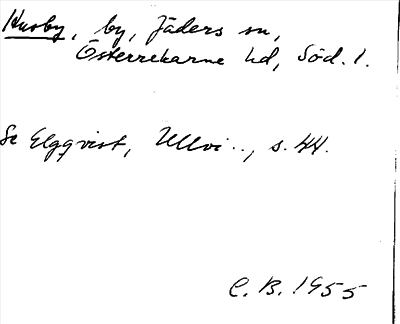 Husby, by, Jäders sn,
Österrekarne hd, Söd. l.
Se Elgqvist, Ullvi.., s. 44.
C. B. 1955